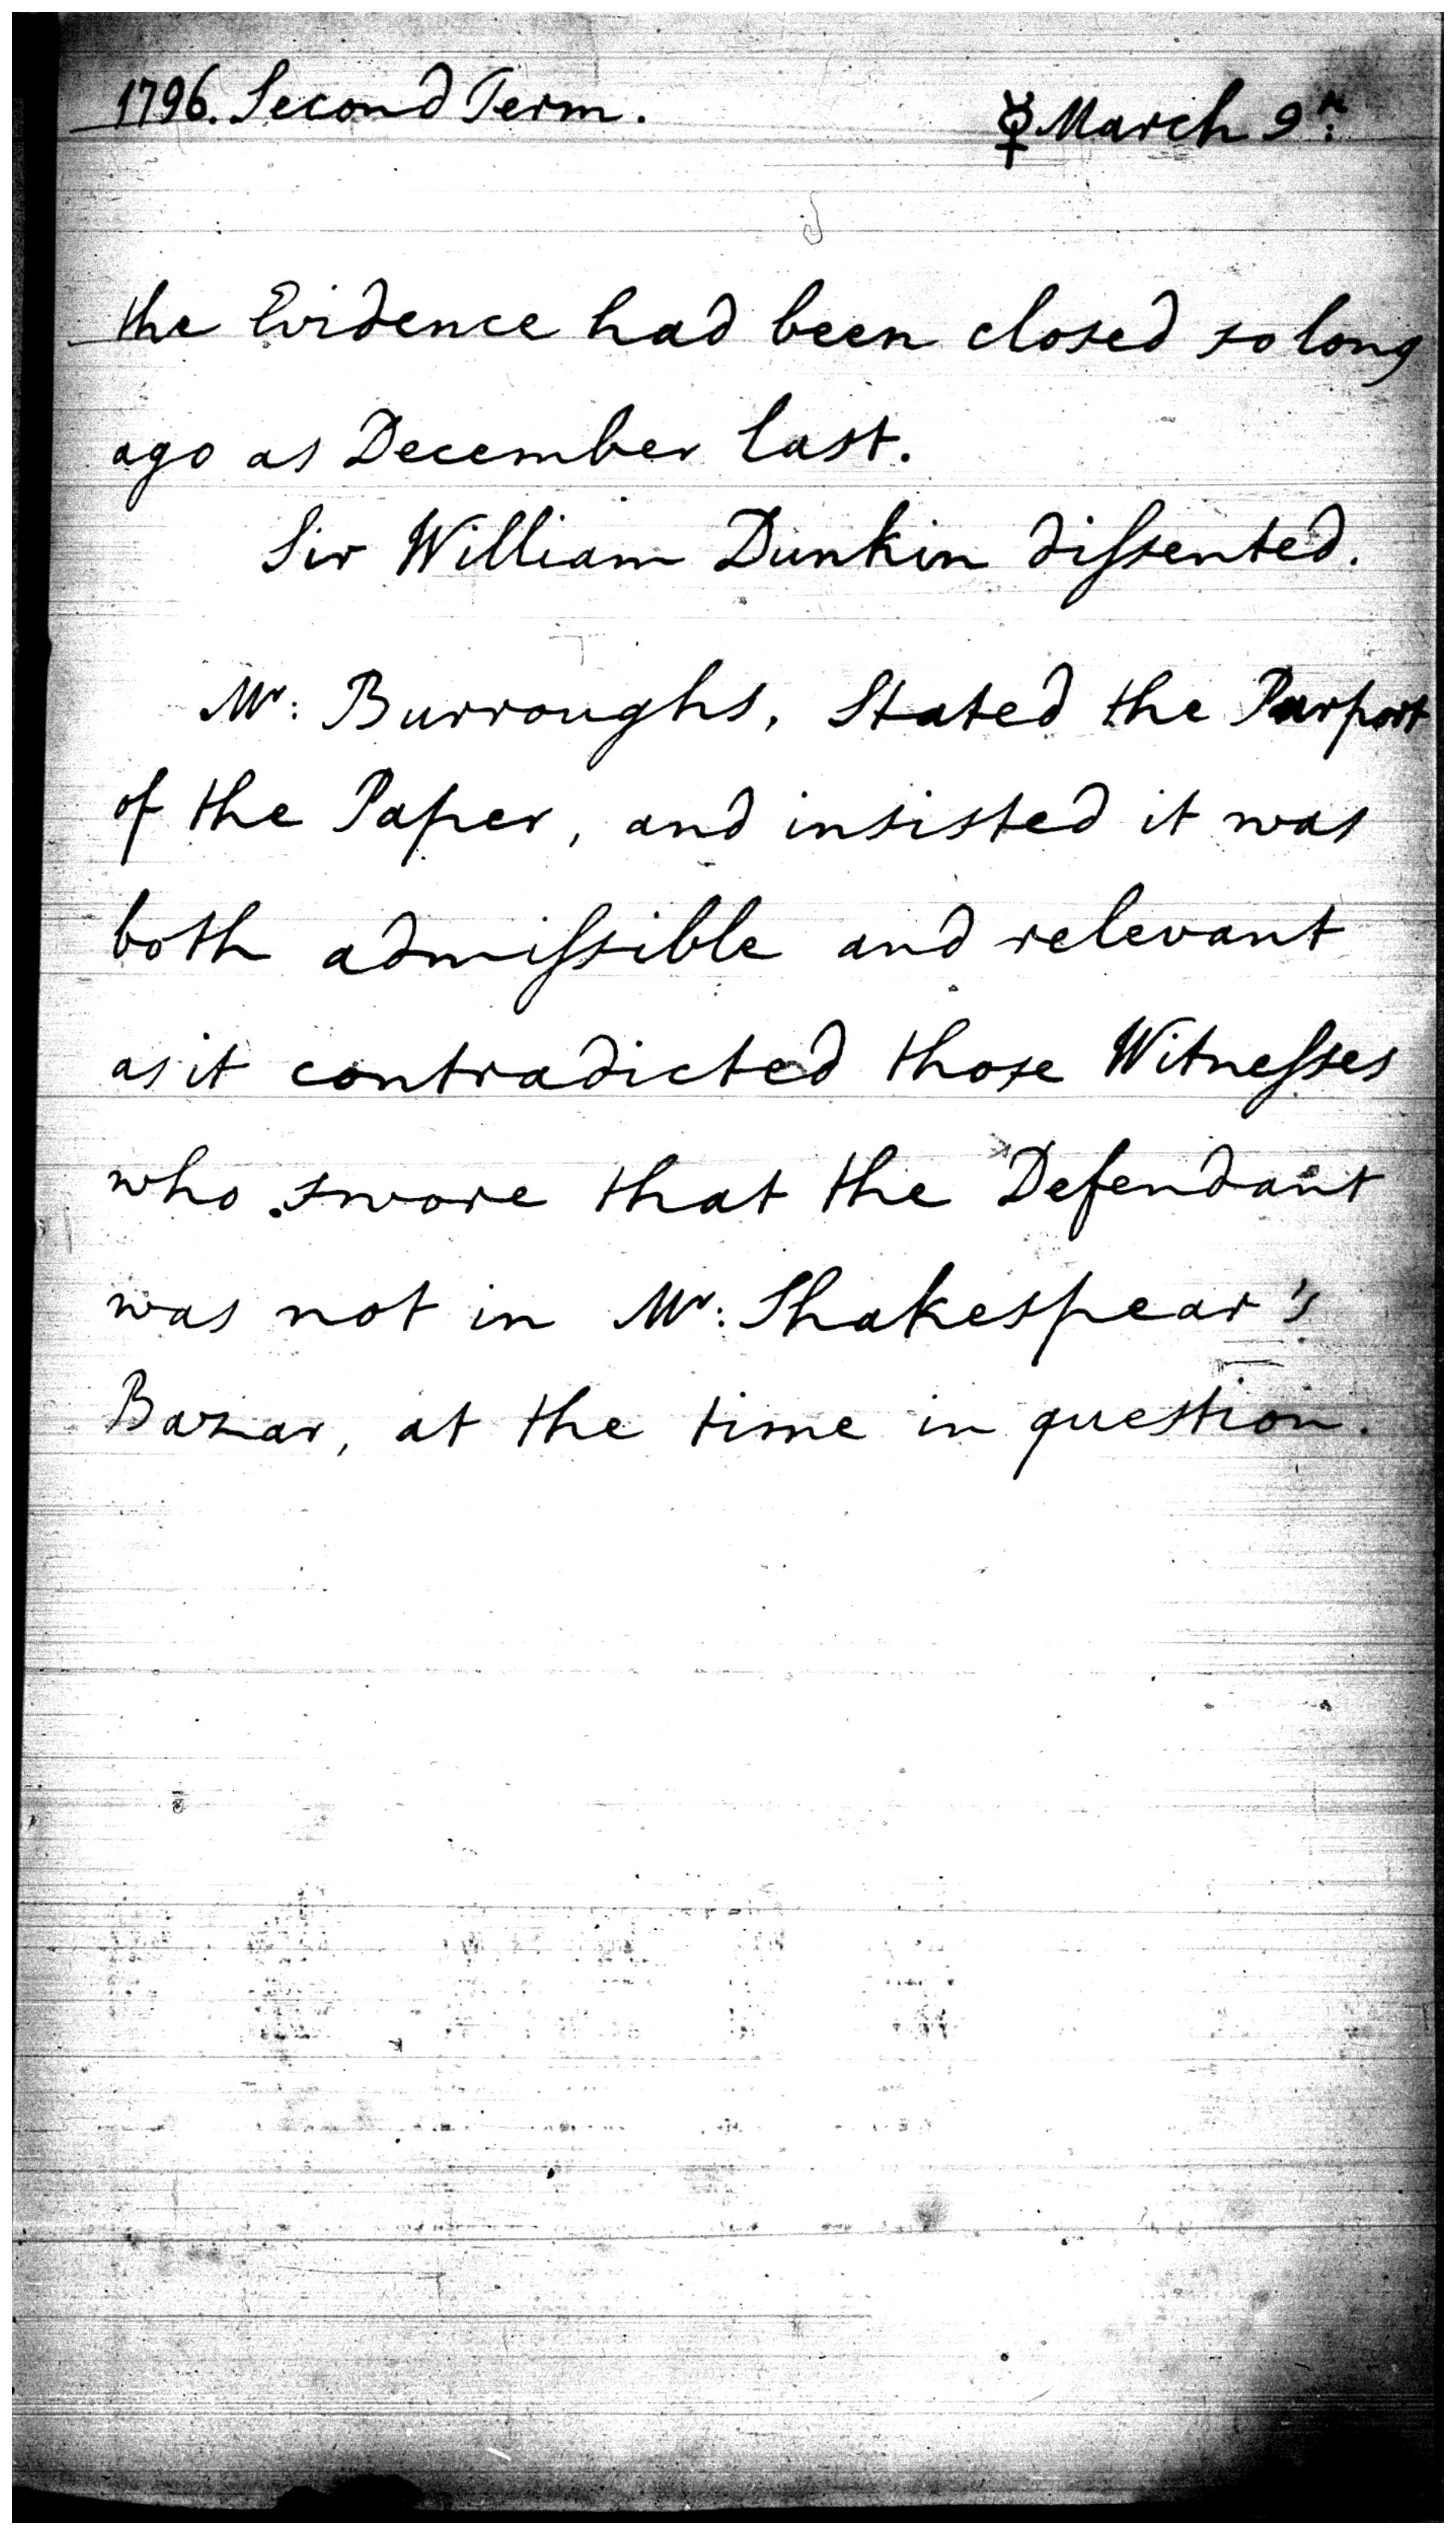 1796. Second Term. ☿ March 9th:
the Evidence had been closed so long
ago as December last.
Sir William Dunkin diſsented.
Mr: Burroughs, Stated the Purport
of the Paper, and insisted it was
both admiſsible and relevant
as it contradicted those Witneſses
who swore that the Defendant
was not in Mr: Shakespear's
Bazar, at the time in question.